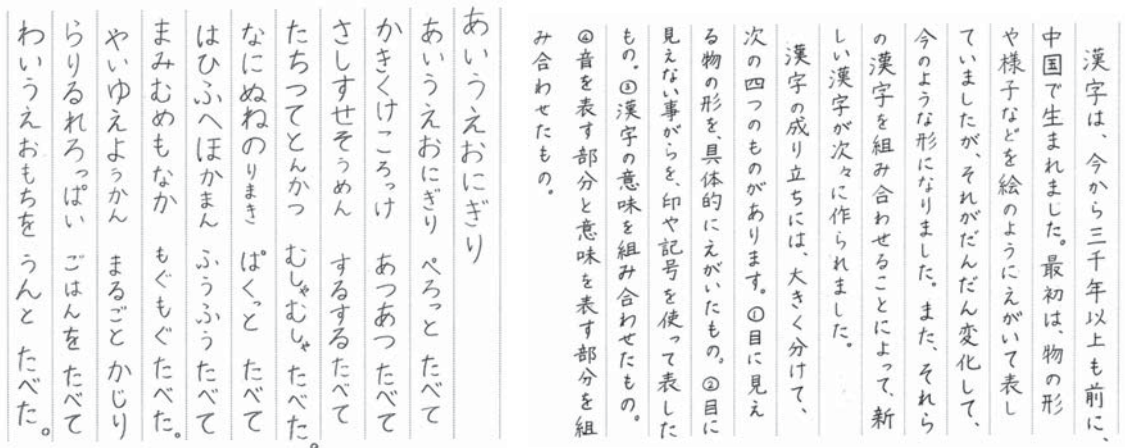 漢字は、今から三千年以上も前に、
中国で生まれました。最初は、物の形
や様子などを絵のようにえがいて表し
ていましたが、それがだんだん変化して、
今のような形になりました。また、それら
の漢字を組み合わせることによって、新
しい漢字が次々に作られました。
漢字の成り立ちには、大きく分けて、
次の四つのものがあります。①目に見え
る物の形を、具体的にえがいたもの。②目に
見えない事がらを、印や記号を使って表した
もの。③漢字の意味を組み合わせたもの。
④音を表す部分と意味を表す部分を組
み合わせたもの。
あいうえおにぎり
あいうえおにぎり ぺろっと たべて
かきくけころっけ あつあつ たべて
さしすせそうめん するする たべて
たちつてとんかつ むしゃむしゃ たべた。
なにぬねのりまき ぱくっと たべて
はひふへほかまん ふうふう たべて
まみむめもなか もぐもぐ たべた。
やいゆえようかん まるごと かじり
らりるれろっぱい ごはんを たべて
わいうえおもちを うんと たべた。